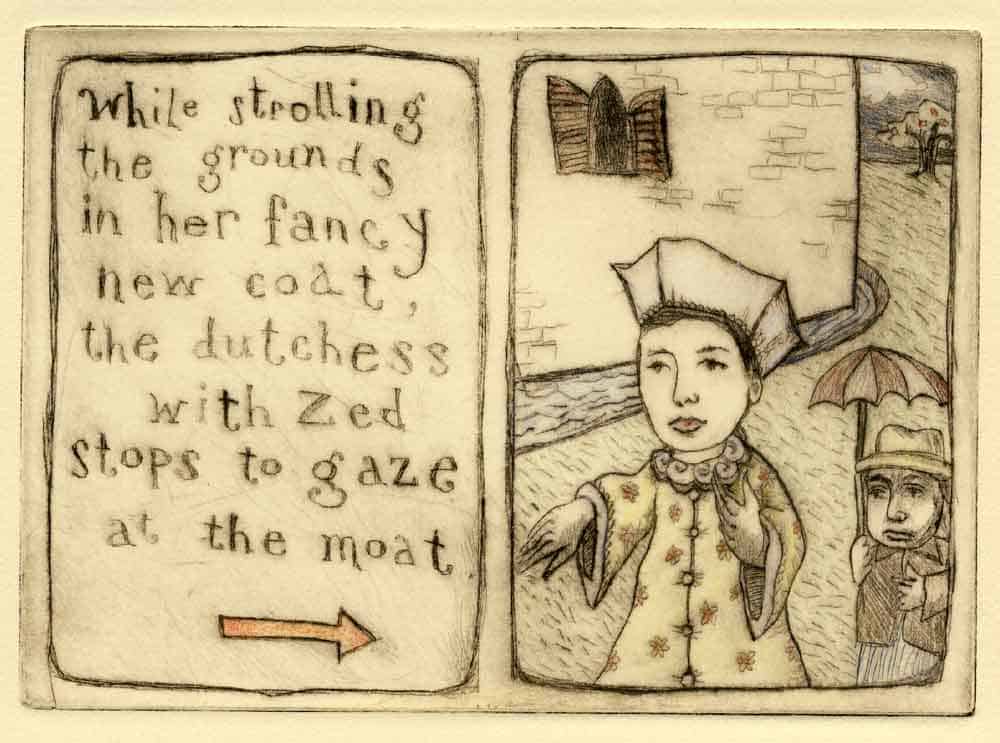 While strolling
the grounds
in her fancy
new coat,
the dutchess
with Zed
stops to gaze
at the moat